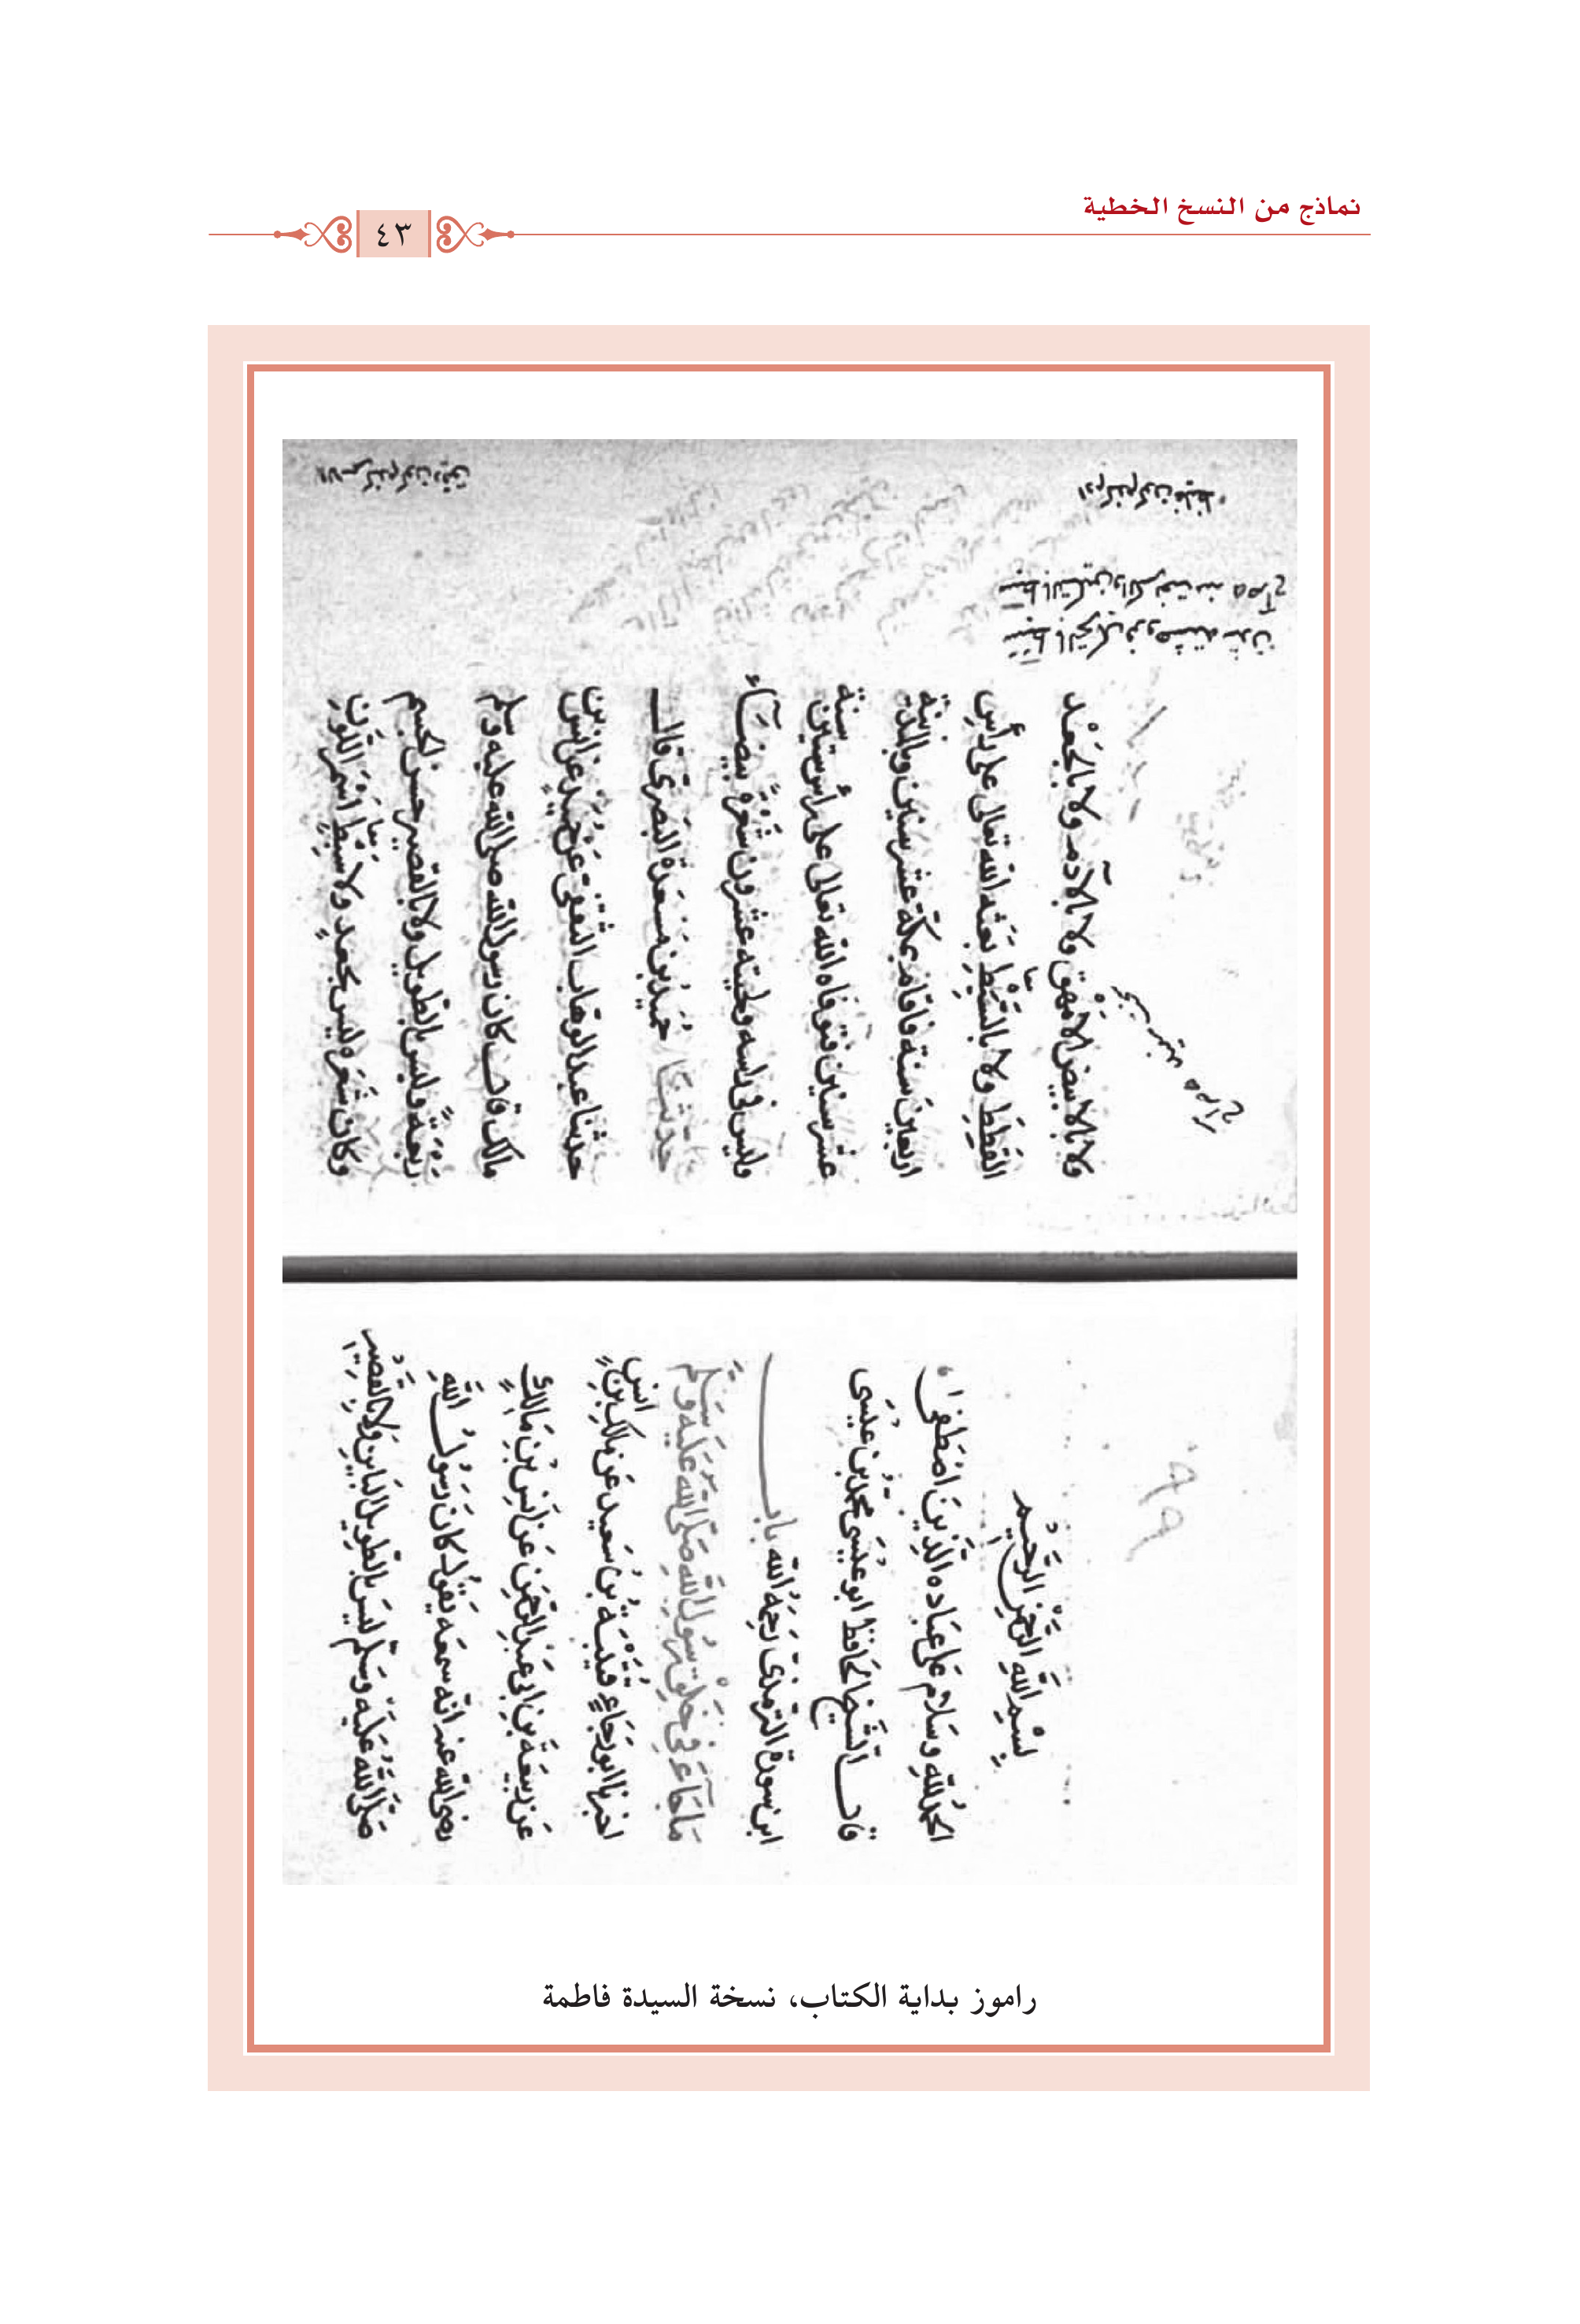 نماذج من النسخ الخطية
٤٣
بِسْمِ اللَّهِ الرَّحْمَنِ الرَّحِيمِ
الحمد للّه وسلام على عباده الذين اصطفى
قال الشيخ الحافظ ابو عيسى محمد بن عيسى
ابن سورة الترمذى رحمه الله باب
ما جاء في خلق رسول الله صلى الله عليه وسلم
اخبرنا ابو رجاء قتيبة بن سعيد عن مالك بن انس
عن ربيعة بن ابى عبد الرحمن عن انس بن مالك
رضى الله عنه انه سمعه يقول كان رسول الله
صلى الله عليه وسلم ليس بالطويل البائن ولا بالقصير
ولا بالابيض الامهق ولا بالآدم ولا بالجعد
القطط ولا بالسبط بعثه الله تعالى على رأس
اربعين سنة فاقام بمكة عشر سنين وبالمدينة
عشر سنين فتوفاه الله تعالى على رأس ستين سنة
وليس فى رأسه ولحيته عشرون شعرة بيضاء
حدثنا حميد بن مسعدة البصرى قال
حدثنا عبد الوهاب الثقفى عن حميد عن انس بن
مالك قال كان رسول الله صلى الله عليه وسلم
ربعة وليس بالطويل ولا بالقصير حسن الجسم
وكان شعره ليس بجعد ولا سبط اسمر اللون
راموز بداية الكتاب، نسخة السيدة فاطمة